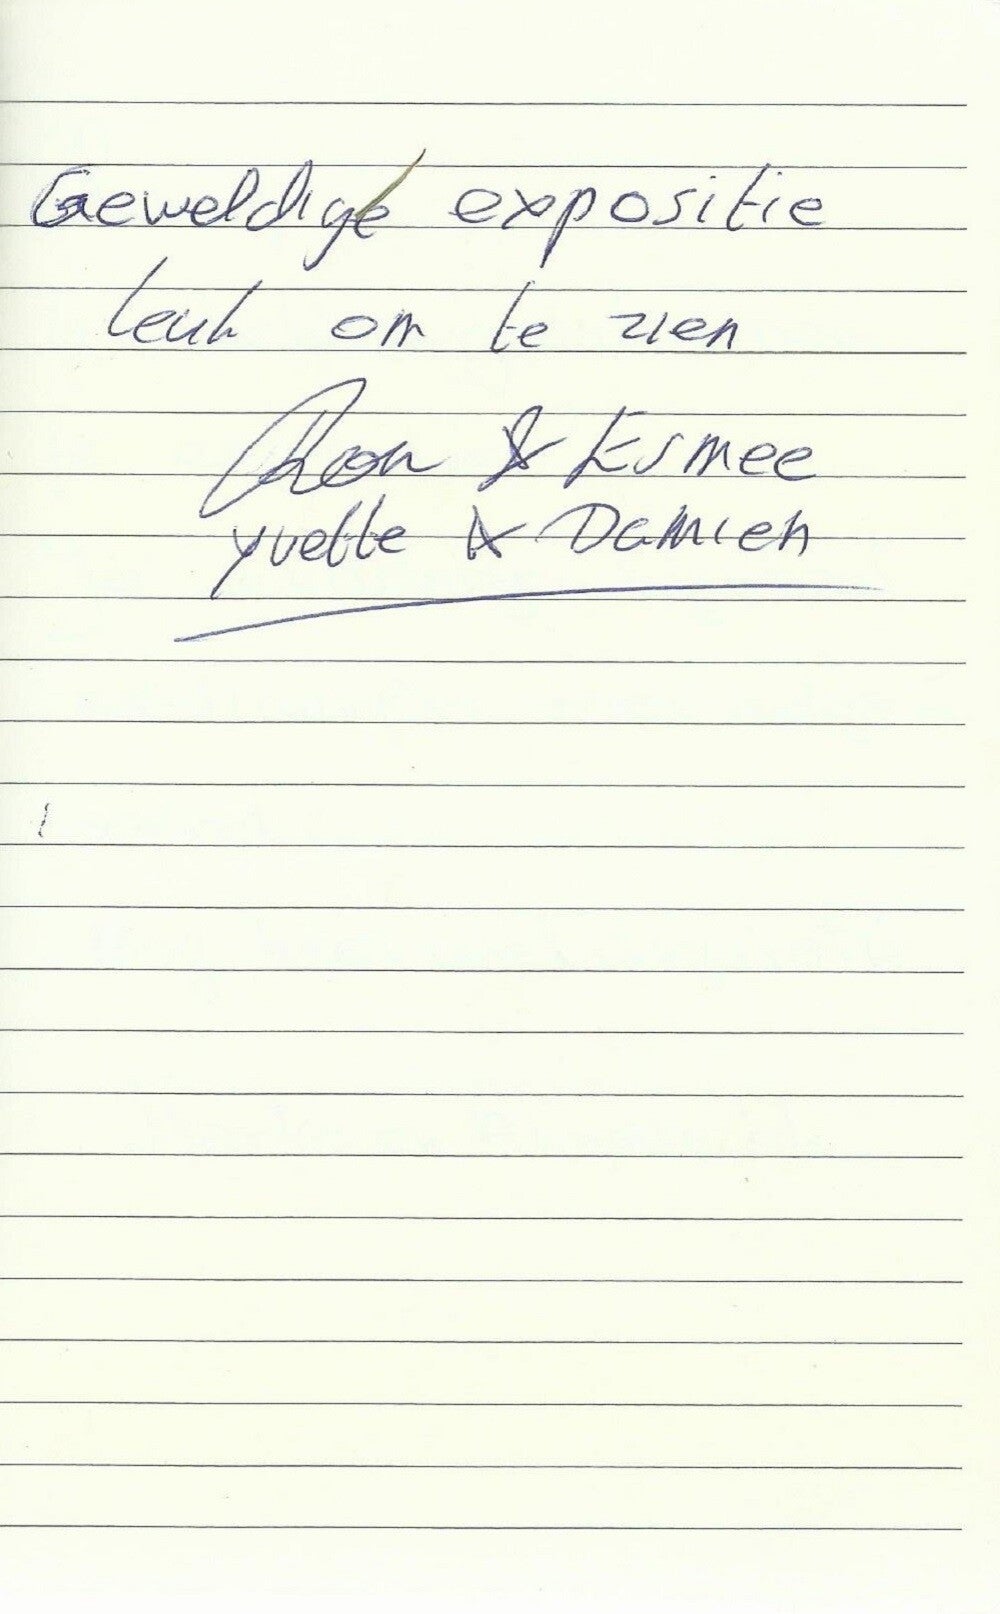 Geweldige expositie
leuk om te zien
Ron & Esmee
yvette & Damien